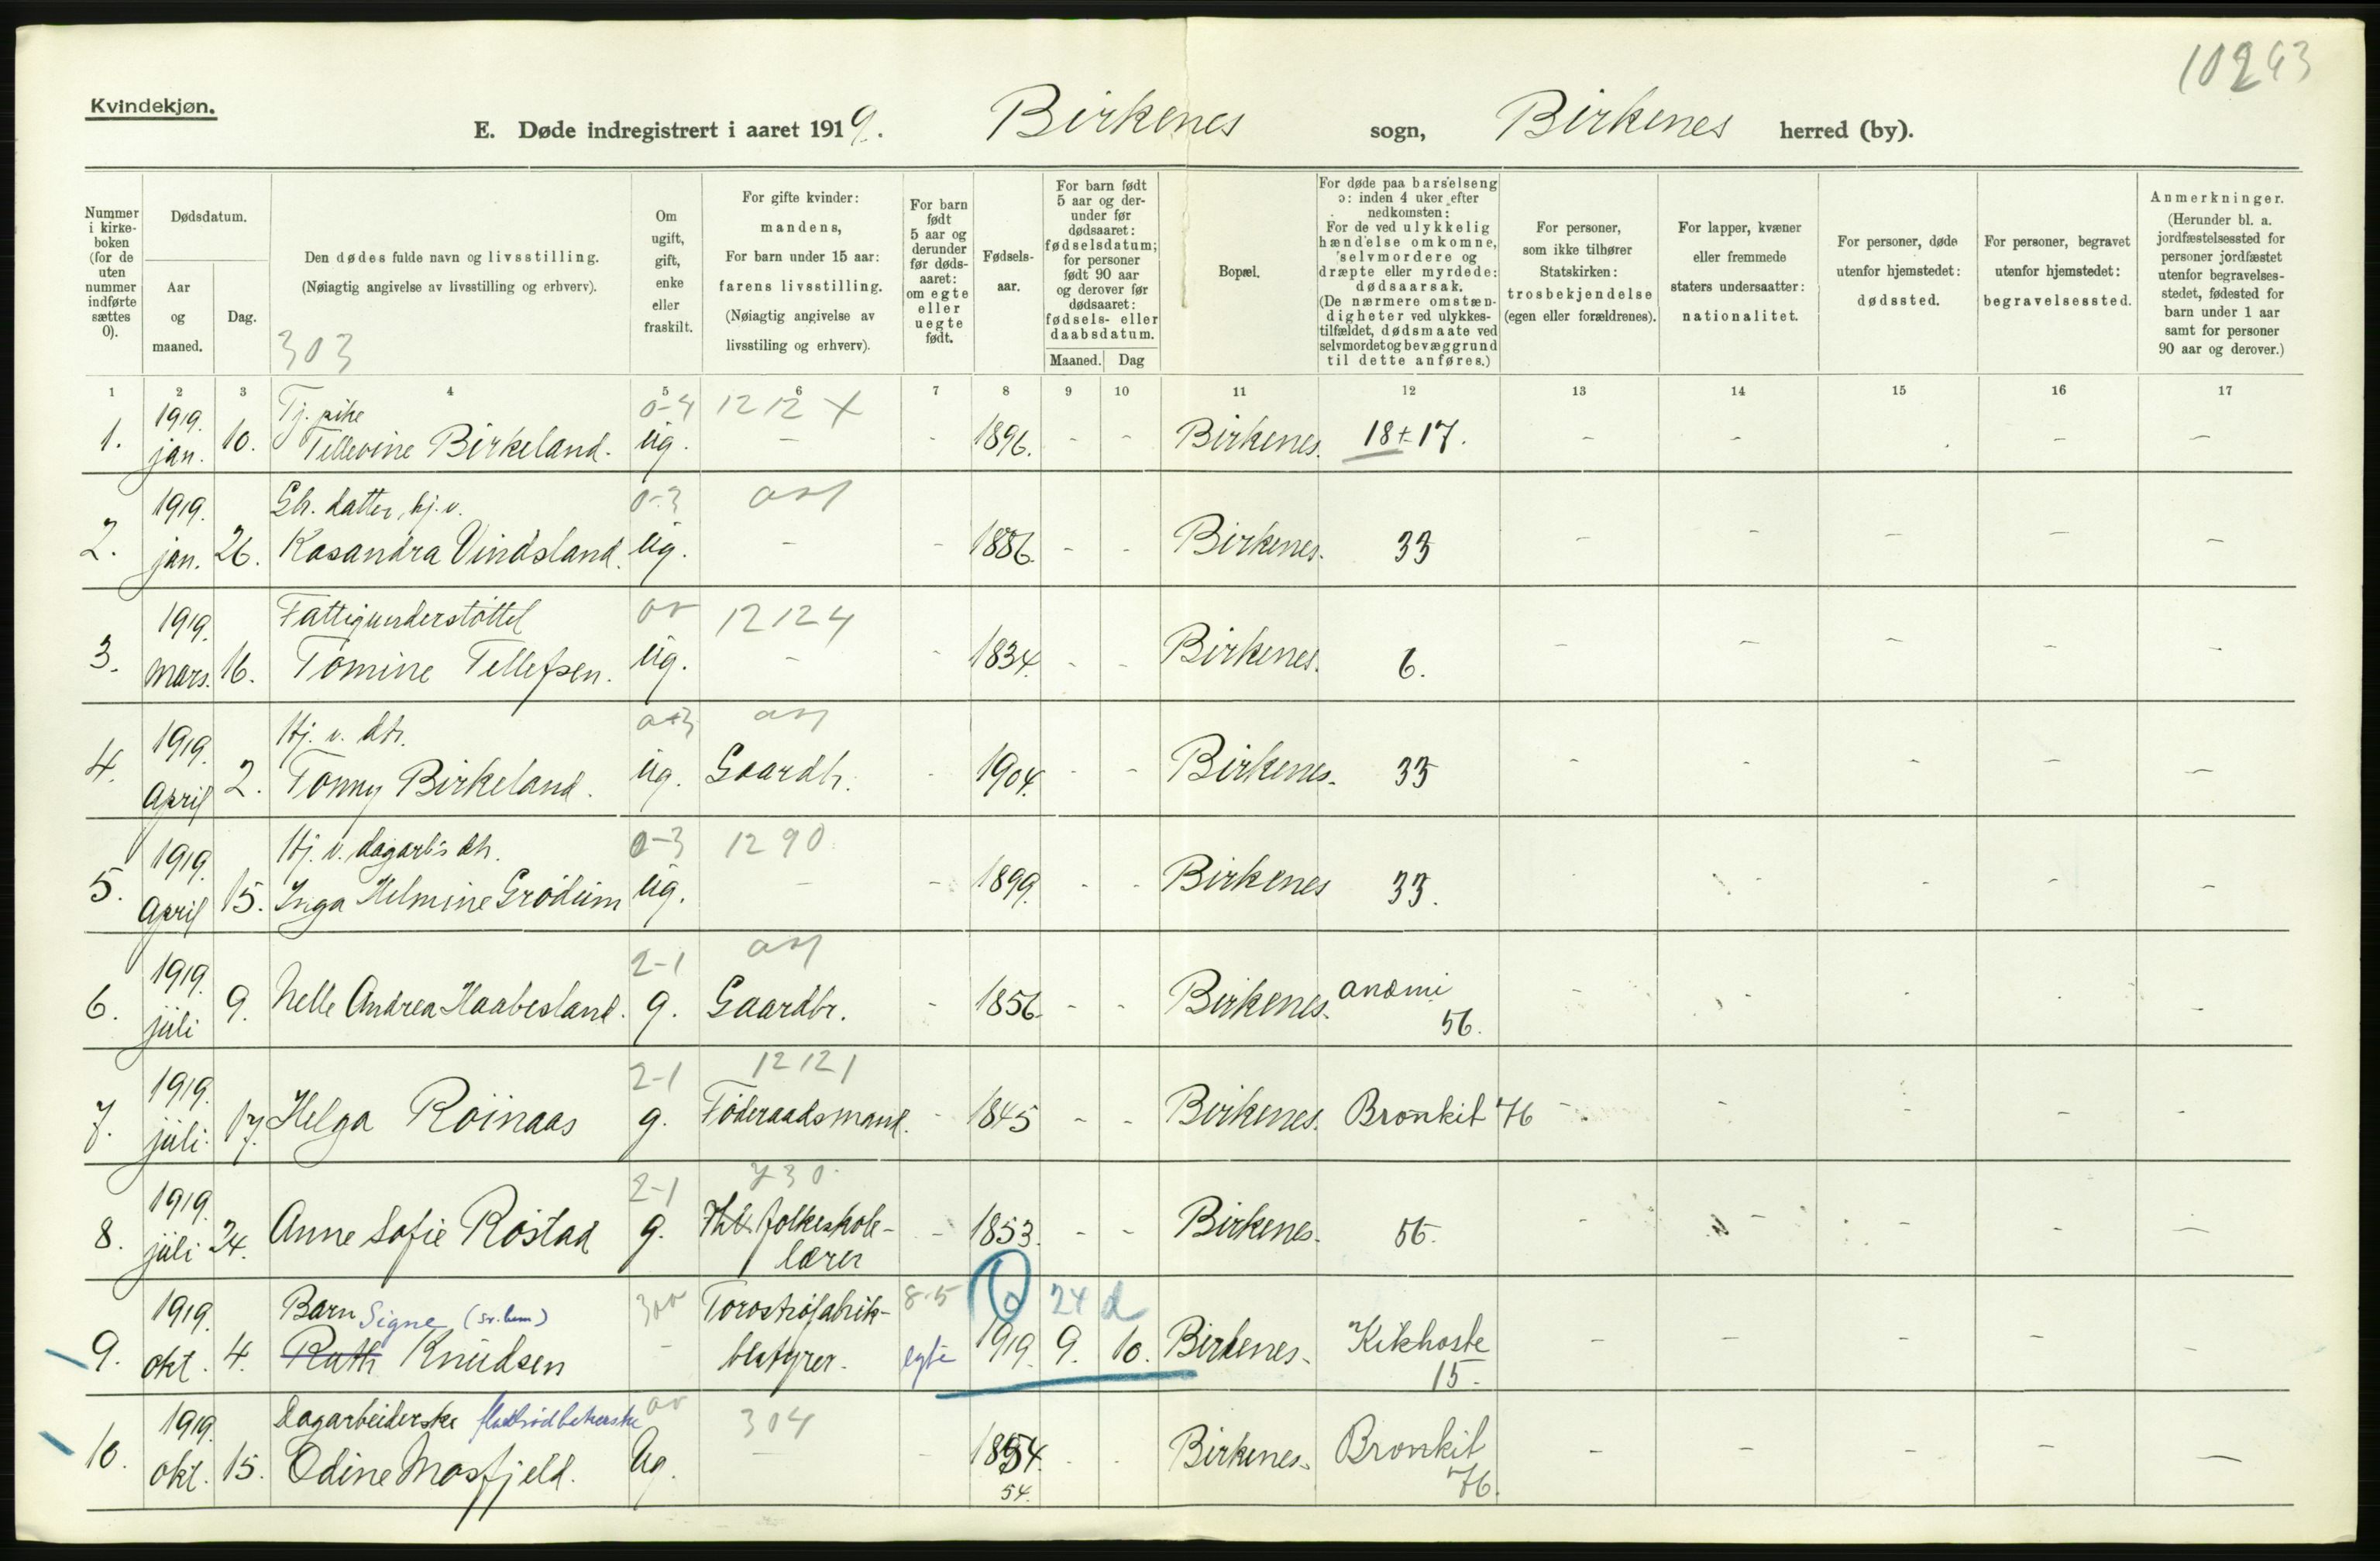 10243
Kvindekjøn.
E. Døde indregistrert i aaret 1919. Birkenes sogn, Birkenes herred (by).
Nummer i kirkeboken (for de uten nummer indførte sættes 0).
Dødsdatum.
Aar og maaned.
Dag.
Den dødes fulde navn og livsstilling.
(Nøiagtig angivelse av livsstilling og erhverv).
303
Om ugift, gift, enke eller fraskilt.
For gifte kvinder: mandens,
For barn under 15 aar: farens livsstilling.
(Nøiagtig angivelse av livsstiling og erhverv).
For barn født 5 aar og derunder før dødsaaret: om egte eller uegte født.
Fødselsaar.
For barn født 5 aar og derunder før dødsaaret: fødselsdatum; for personer født 90 aar og derover før dødsaaret: fødsels- eller daabsdatum.
Maaned. Dag
Bopæl.
For døde paa barselseng ɔ: inden 4 uker efter nedkomsten:
For de ved ulykkelig hændelse omkomne, selvmordere og dræpte eller myrdede: dødsaarsak.
(De nærmere omstændigheter ved ulykkestilfældet, dødsmaate ved selvmordet og bevæggrund til dette anføres.)
For personer, som ikke tilhører Statskirken: trosbekjendelse (egen eller forældrenes).
For lapper, kvæner eller fremmede staters undersaatter: nationalitet.
For personer, døde utenfor hjemstedet: dødssted.
For personer, begravet utenfor hjemstedet: begravelsessted.
Anmerkninger.
(Herunder bl. a. jordfæstelsessted for personer jordfæstet utenfor begravelsesstedet, fødested for barn under 1 aar samt for personer 90 aar og derover.)
1 2 3 4 5 6 7 8 9 10 11 12 13 14 15 16 17
1919. Tj. pike 0-4 1212 X
1. jan. 10. Tellevine Birkeland. ug. - - 1896. - - Birkenes. 18+17. - - . - -
1919. Gb. datter, hj. v. 0-3
2. jan. 26. Kasandra Vindsland. ug. - - 1886. - - Birkenes. 33 - - - - -
1919. Fattigunderstöttet 12124
3. mars. 16. Tomine Tellefsen. ug. - - 1834. - - Birkenes. 6. - - - - -
1919. Hj. v. dtr.
4. April 2. Tonny Birkeland. ug. Gaardbr. - 1904. - - Birkenes. 33 - - - - -
1919. Hj. v. dagarb's dtr. 0-3 1290
5. April 15. Inga Helmine Grödum ug. - - 1899. - - Birkenes 33. - - - - -
1919. 2-1
6. juli 9. Nelle Andrea Haabesland. g. Gaardbr. - 1856. - - Birkenes. anæmi 56. - - - - -
1919. 2-1 12121
7. juli. 17. Helga Röinaas g. Föderaadsmand. - 1845 - - Birkenes. Bronkit 76 - - - - -
1919. 2-1 730
8. juli 24. Anne Sofie Röstad g. folkeskolelærer - 1853. - - Birkenes. 56. - - - - -
1919. Barn Signe (sv. hun) Torvströfabrik- 8-5 0 24 d
9. okt. 4. Ruth Knudsen - bestyrer. egte 1919. 9. 10. Birkenes. Kikhoste 15. - - - - -
1919. Dagarbeiderske flatbrödbakerske 304
10. okt. 15. Odine Mosfjeld. Ug. - - 1854. 54. . . Birkenes. Bronkit 76. - - - - -